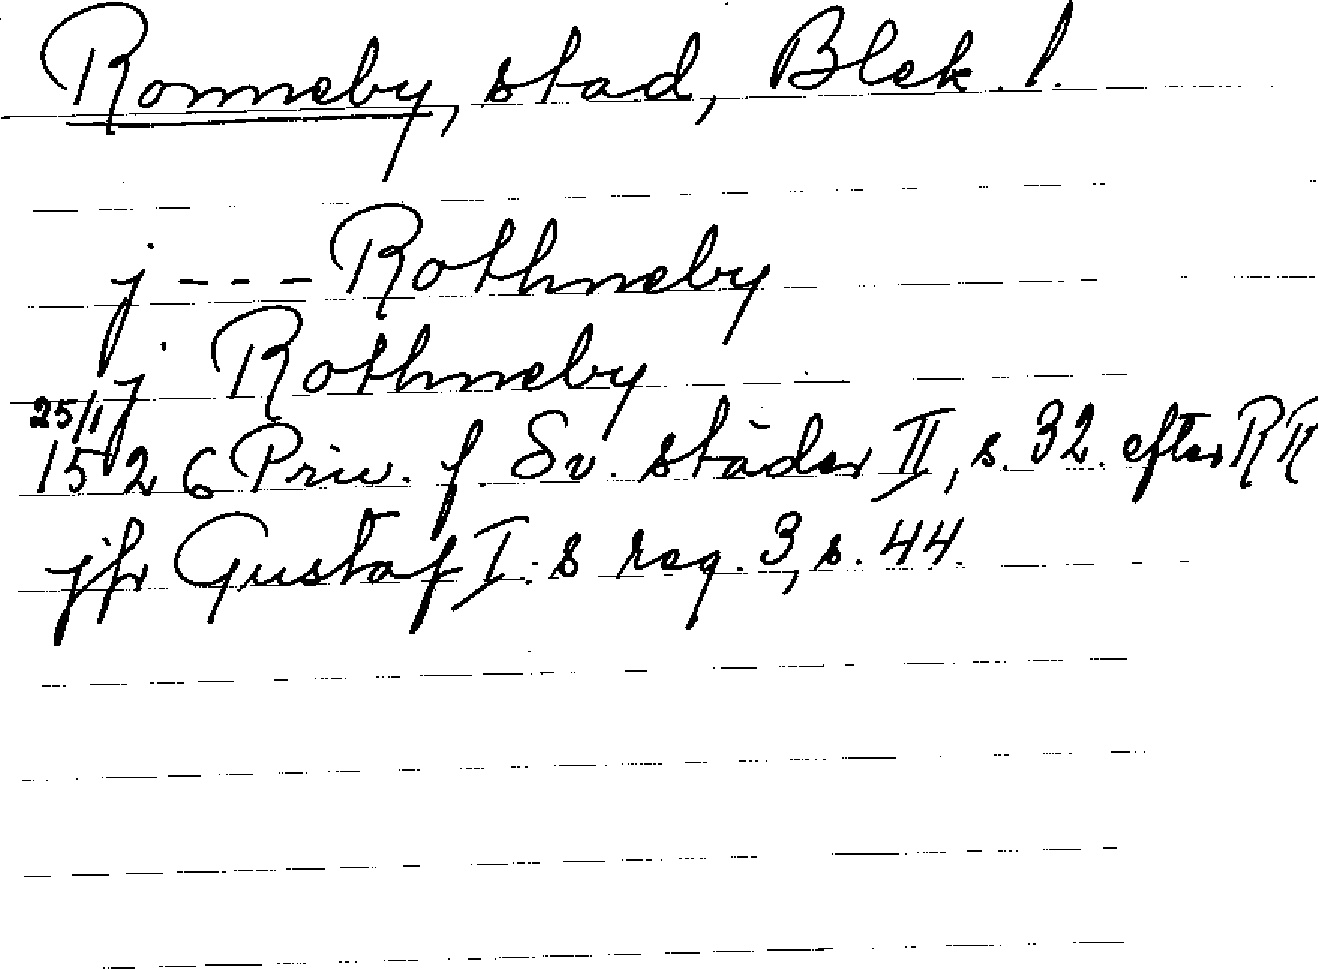 Ronneby, stad, Blek. l.
j - - - Rothneby
j Rothneby
25/1
1526 Priv. f. Sv. städer II, s. 32. efter RR
jfr Gustaf I:s reg. 3, s. 44.